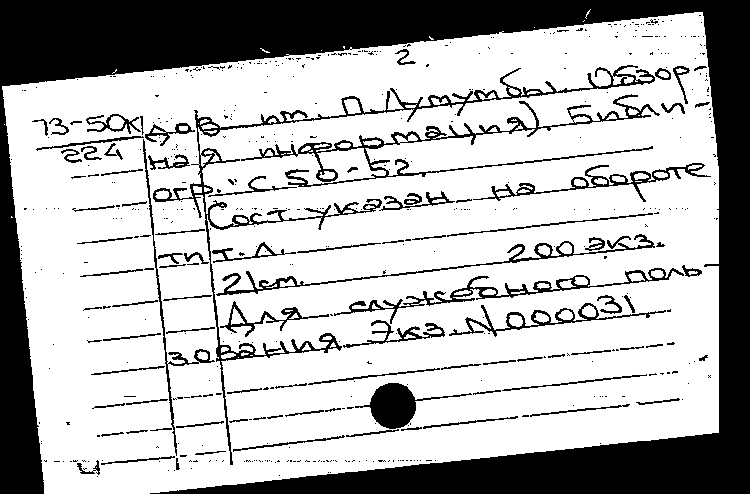 2.
73-50К дов им. П. Лумумбы. Обзор-
224 ная информация). Библи-
огр.: с. 50-52.
Сост. указан на обороте
тит. л.
21 см. 200 экз.
Для служебного поль-
зования. Экз. N 000031.